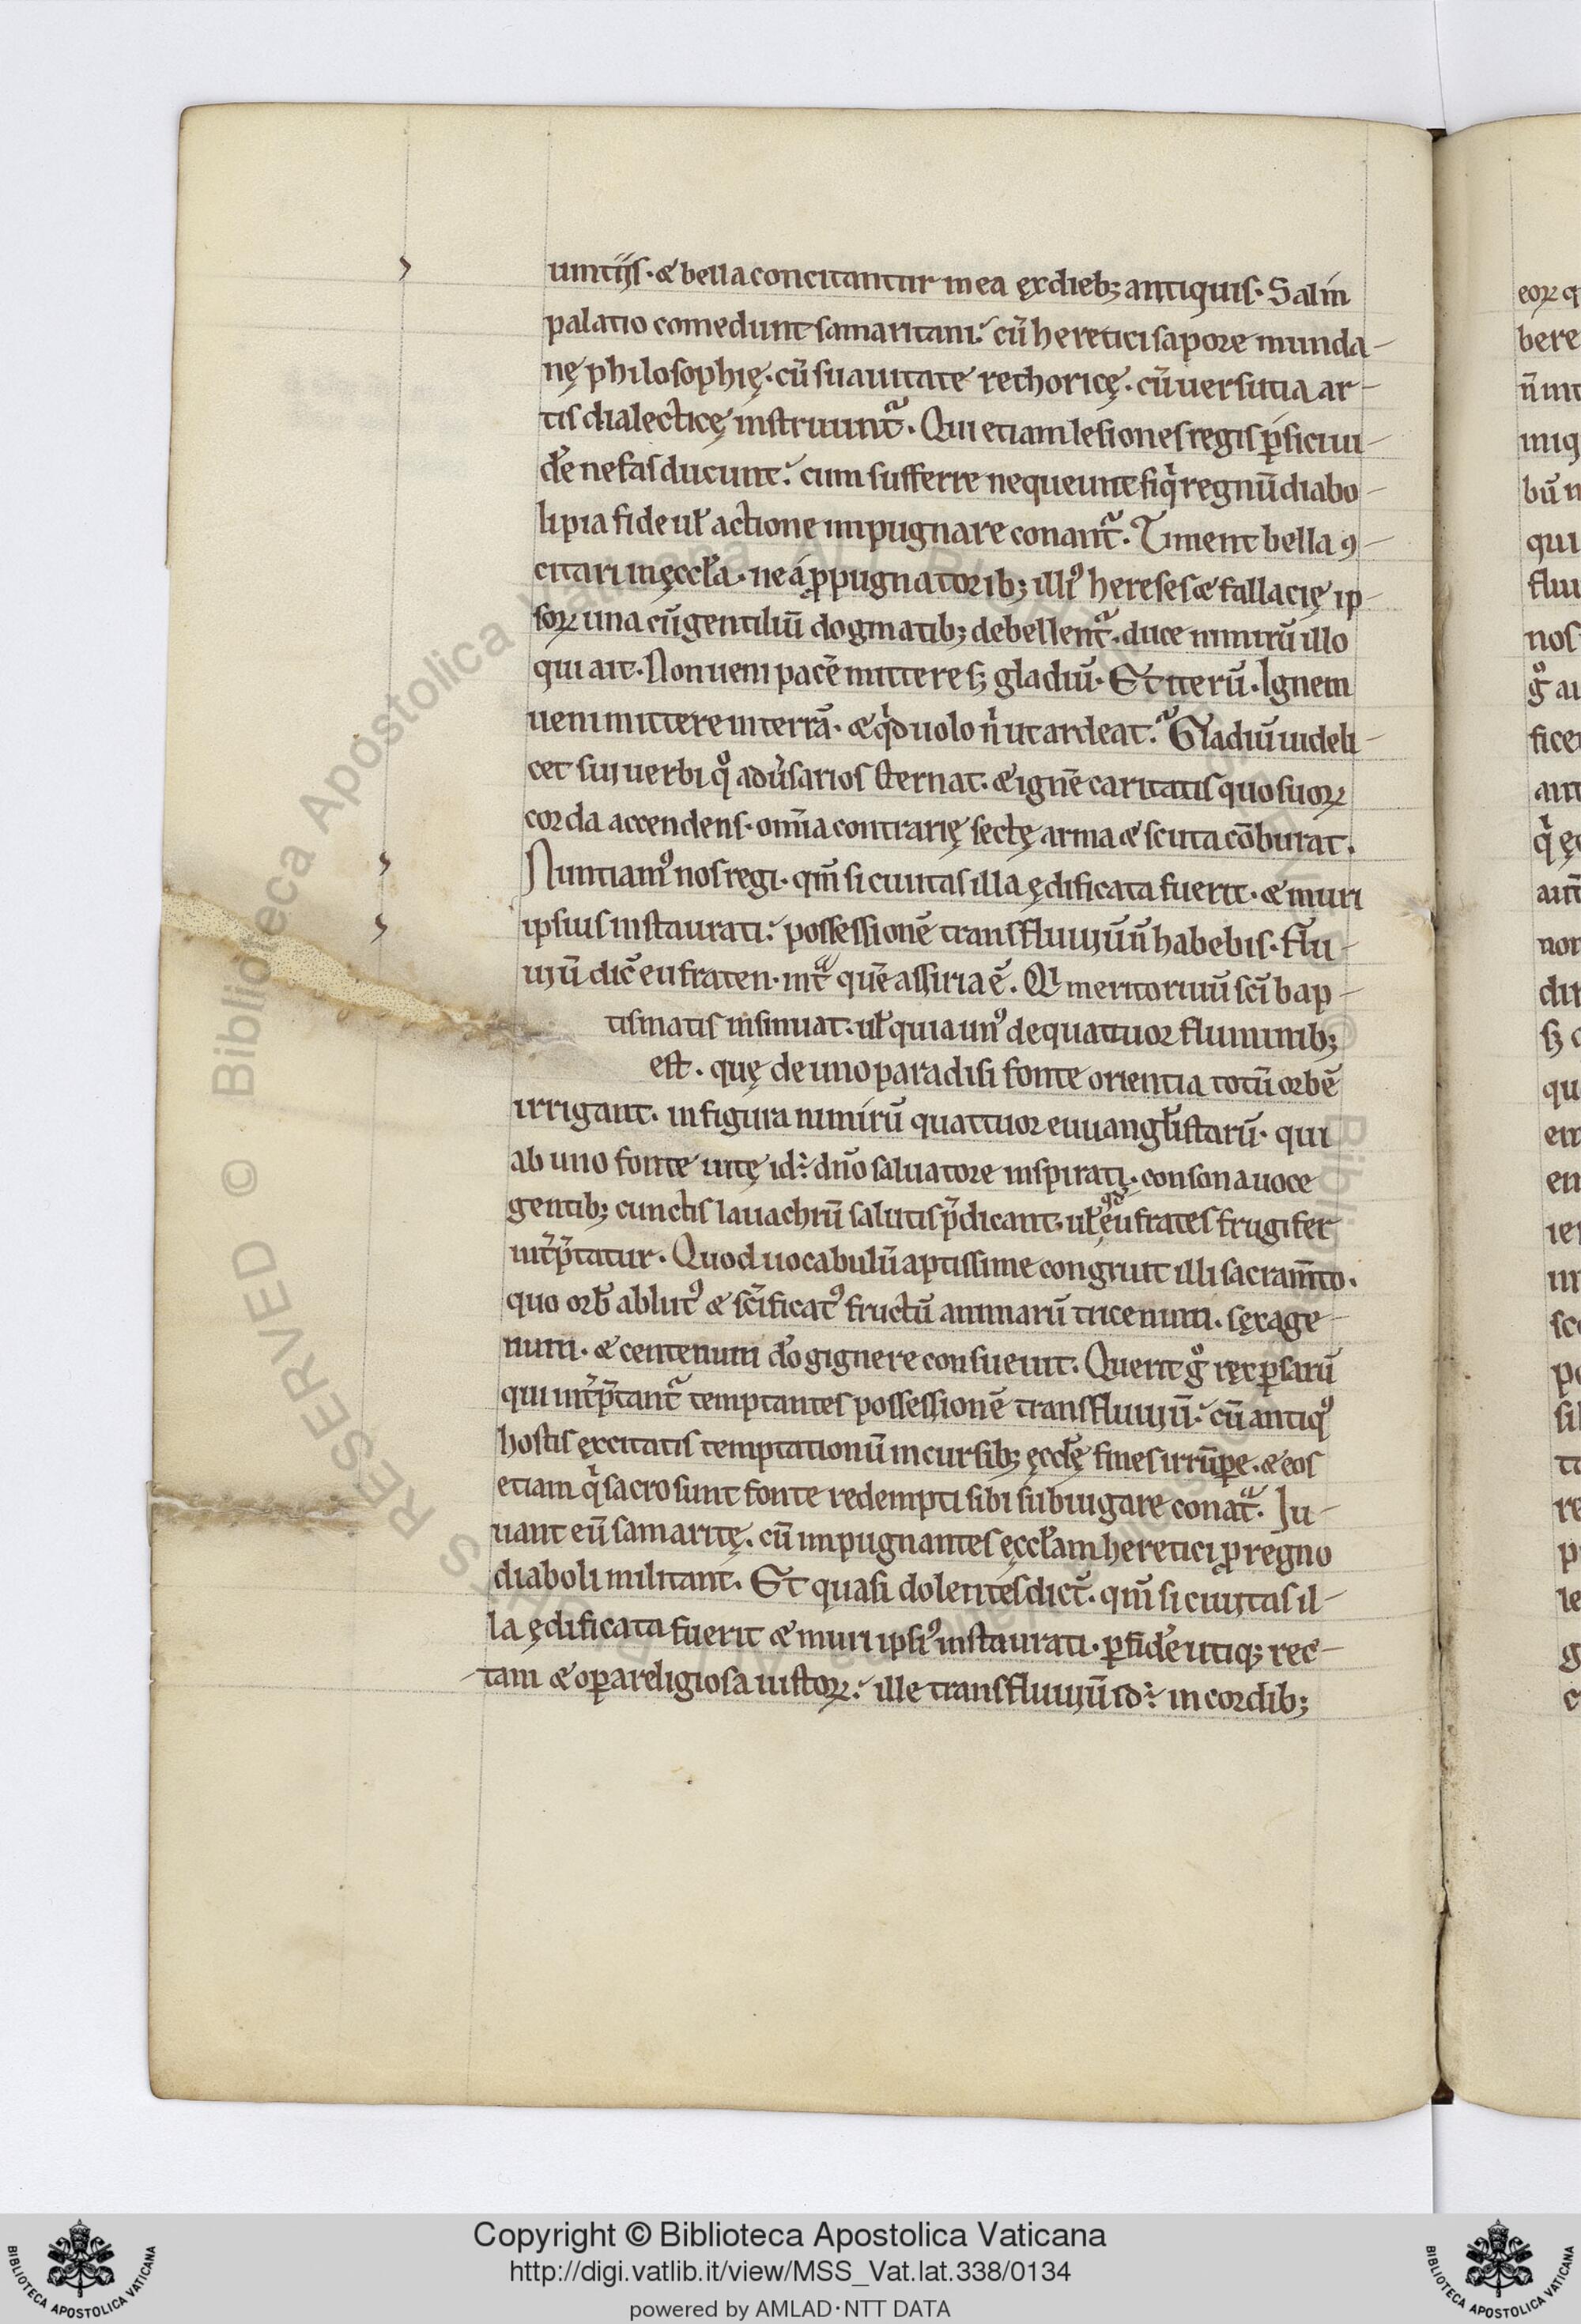 uintiis· & bella concitantur in ea ęx dieb; antiquis· Sal in
palatio comedunt samaritani.' cū heretici sapore munda-
nę philosophię· cū suauitate rethoricę· cū uersutia ar-
tis dialecticę instruuntᷓ· Qui etiam lesiones regis p̲sici ui-
de͛ nefas ducunt.' cum sufferre nequeunt siq̇ regnū diabo-
li pia fide ut̵ actione impugnare conantᷓ· Timent bella ꝯ-
citari in ęccl̵a· ne á ꝓpugnatorib; illiꝰ hereses & fallacię ip-
soꝝ una cū gentiliū dogmatib; debellentᷓ· duce nimirū illo
qui ait· Non ueni pacē mittere sꝫ gladiū· Et iterū· Ignem
ueni mittere in terrā· & qͥd uolo nͥ ut ardeat.' Gladiū uideli-
cet sui uerbi qͦ adūsarios sternat· & ignē caritatis quo suoꝝ
corda accendens· om̄ia contrarię sectę arma & scuta cōburat·
Nuntiamꝰ nos regi· qm̄ si ciuitas illa ędificata fuerit· & muri
ipsius instaurati.' possessionē trans fluuiū n̄ habebis· Flu-
uiū dic̄ eufraten· intᷓ quē assiria ē· Qͥ merito riuū sc̄i bap-
tismatis insinuat· ul̵ quia unꝰ de quattuor fluminib;
est· quę de uno paradisi fonte orientia totū orbē
irrigant· in figura nimirū quattuor euuangl̵istarū· qui
ab uno fonte uitę id.' dn̄o saluatore inspirati· consona uoce
gentib; cunctis lauachrū salutis p̄dicant· ul̵ qd̄ eufrates frugifer
int͛p̄tatur· Quod uocabulū aptissime congruit illi sacram̄to·
quo orb̄ ablutꝰ & sc̄ificatꝰ fructū animarū tricenum· sęxage-
num· & centenum do͛ gignere consueuit· Querit gͦ ręx p̲sarū
qui int͛p̄tantᷓ temptantes possessionē trans fluuiū.' cū antiqꝰ
hostis ęxcitatis temptationū incursib; ęccl̵ę fines irrūpe͛· & eos
etiam qͥ sacro sunt fonte redempti sibi subiugare conatᷓ· Iu-
uant eū samaritę· cū impugnantes ęccl̵am heretici ꝓ regno
diaboli militant· Et quasi dolentes dict̄· qm̄ si ciuitas il-
la ędificata fuerit & muri ipsiꝰ instaurati· p̲ fidē utiq; rec-
tam & op̲a religiosa iustoꝝ.' ille trans fluuiū id.' in cordib;
Copyright © Biblioteca Apostolica Vaticana
http://digi.vatlib.it/view/MSS_Vat.lat.338/0134
powered by AMLAD·NTT DATA